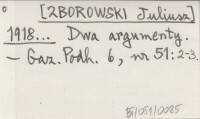 [ZBOROWSKI Juliusz]
1918... Dwa argumenty.
- Gaz. Podh. 6, nr 51: 2-3.
B/051/0085